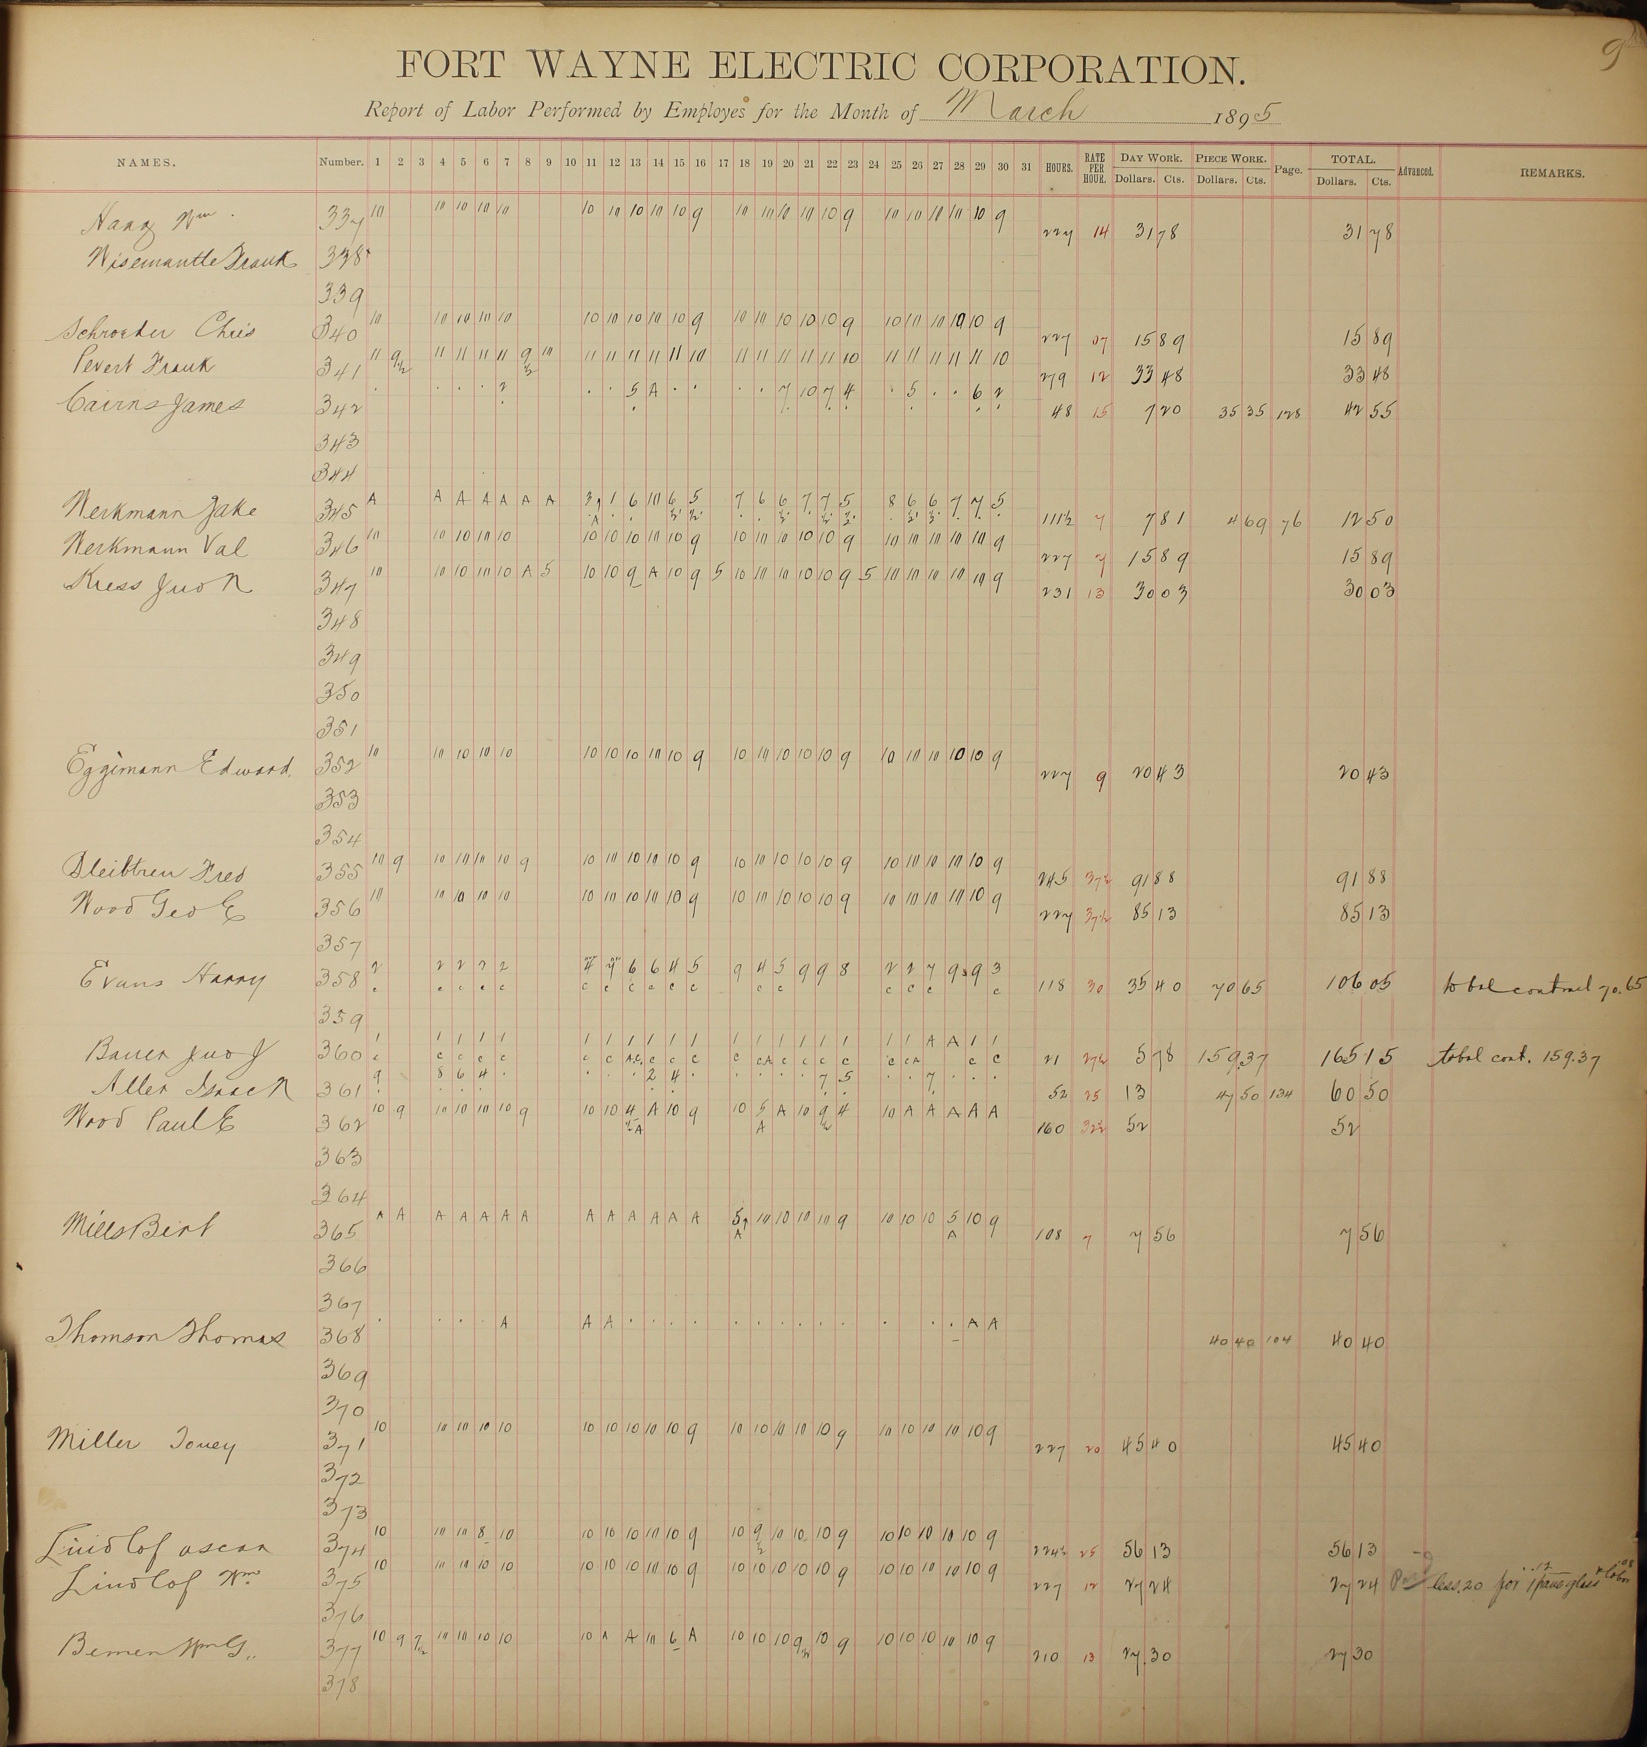 9
FORT WAYNE ELECTRIC CORPORATION.
Report of Labor Performed by Employes for the Month of March 1895
NAMES. Number. 1 2 3 4 5 6 7 8 9 10 11 12 13 14 15 16 17 18 19 20 21 22 23 24 25 26 27 28 29 30 31 HOURS. RATE PER HOUR. DAY WORK. PIECE WORK. Page. TOTAL. Advanced. REMARKS.
Dollars. Cts. Dollars. Cts. Dollars. Cts.
Wm 337 10 10 10 10 10 10 10 10 10 10 9 10 10 10 10 10 9 10 10 10 10 10 9 227 14 31 78 31 78
Wisemantle Frank 338
339
Schroeder Chris 340 10 10 10 10 10 10 10 10 10 10 9 10 10 10 10 10 9 10 10 10 10 10 9 227 07 15 89 15 89
Pevert Frank 341 11 9½ 11 11 11 11 9½ 10 11 11 11 11 11 10 11 11 11 11 11 10 11 11 11 11 11 10 279 12 33 48 33 48
Cairns James 342 2 5 A 7 10 7 4 5 6 2 48 15 7 20 35 35 128 42 55
343
344
Werkmann Jake 345 A A A A A A A 6 10 7 6 7 8 7 7 5 111½ 7 7 81 4 69 76 12 50
Werkmann Val 346 10 10 10 10 10 10 10 10 10 10 9 10 10 10 10 10 9 10 10 10 10 10 9 227 7 15 89 15 89
Kress Jno N 347 10 10 10 10 10 A 5 10 10 9 A 10 9 5 10 10 10 10 10 9 5 10 10 10 10 10 9 231 13 30 03 30 03
348
349
350
351
Eggimann Edward. 352 10 10 10 10 10 10 10 10 10 10 9 10 10 10 10 10 9 10 10 10 10 10 9 227 9 20 43 20 43
353
354
Bleibtreu Fred 355 10 9 10 10 10 10 9 10 10 10 10 10 9 10 10 10 10 10 9 10 10 10 10 10 9 245 37½ 91 88 91 88
Wood Geo E 356 10 10 10 10 10 10 10 10 10 10 9 10 10 10 10 10 9 10 10 10 10 10 9 227 37½ 85 13 85 13
357
Evans Harry 358 2 2 2 2 2 4 4 6 6 4 5 9 4 5 9 9 8 2 2 7 9 9 3 118 30 35 40 70 65 106 05 total contract 70.65
c c c c c c c c c c c c c c c c c
359
Bauer Jno J 360 1 1 1 1 1 1 1 1 1 1 1 1 1 1 1 1 1 1 1 A A 1 1 21 27½ 5 78 159.37 165 15 total cont. 159.37
c c c c c c c A.C. c c c c cA c c c c c cA c c
Aller Isaac N 361 9 8 6 4 2 4 7 5 7 52 25 13 47 50 134 60 50
Wood Paul E 362 10 9 10 10 10 10 9 10 10 4½A A 10 9 10 5A A 10 9½ 4 10 A A A A A 160 32½ 52 52
363
364
Mills Bert 365 A A A A A A A A A A A A A 10 10 10 10 9 10 10 10 5A 10 9 108 7 7 56 7 56
366
367
Thomson Thomas 368 A A A A A 40 40 104 40 40
369
370
Miller Toney 371 10 10 10 10 10 10 10 10 10 10 9 10 10 10 10 10 9 10 10 10 10 10 9 227 20 45 40 45 40
372
373
Lindlof oscar 374 10 10 10 8 10 10 10 10 10 10 9 10 9½ 10 10 10 9 10 10 10 10 10 9 224½ 25 56 13 56 13
Lindlof Wm 375 10 10 10 10 10 10 10 10 10 10 9 10 10 10 10 10 9 10 10 10 10 10 9 227 12 27 24 27 24 less .20 for 1 pane glass .12 & labor .08
376
Wm G. 377 10 9 7½ 10 10 10 10 10 A A 10 6 A 10 10 10 9½ 10 9 10 10 10 10 10 9 210 13 27.30 27 30
378